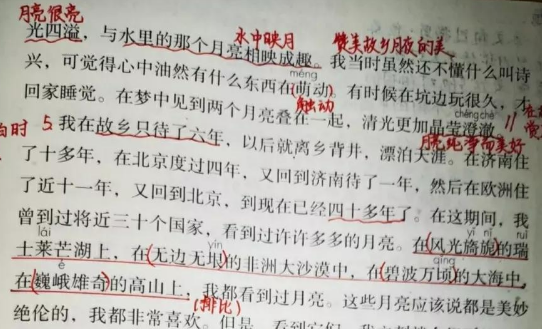 月亮很亮
光四溢，与水里的那个月亮相映成趣。我当时虽然还不懂什么叫诗
水中映月 赞美故乡月夜的美
兴，可觉得心中油然有什么东西在萌动。有时候在坑边玩很久，才
méng
回家睡觉。在梦中见到两个月亮叠在一起，清光更加晶莹澄澈。
触动
chéng chè
月亮纯净而美好
5 我在故乡只待了六年，以后就离乡背井，漂泊天涯。在济南住
了十多年，在北京度过四年，又回到济南待了一年，然后在欧洲住
了近十一年，又回到北京，到现在已经四十多年了。在这期间，我
曾到过将近三十个国家，看到过许许多多的月亮。在风光旖旎的瑞
yǐ nǐ ruì
士莱芒湖上，在无边无垠的非洲大沙漠中，在碧波万顷的大海中，
lái yín qǐng
在巍峨雄奇的高山上，我都看到过月亮。这些月亮应该说都是美妙
é
(排比)
绝伦的，我都非常喜欢。但是，看到它们，我